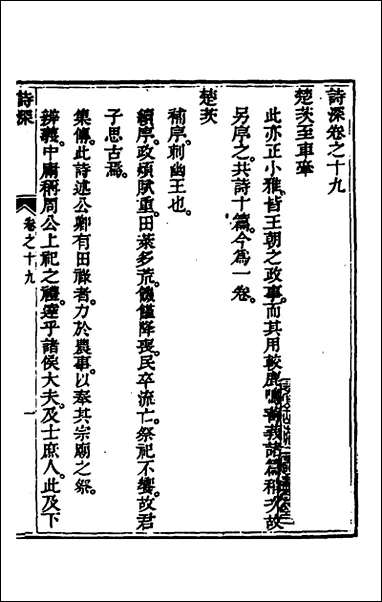 詩深卷之十九
楚茨至車舝
此亦正小雅。皆王朝之政事。而其用較鹿鳴菁莪諸篇稍次。故
另序之。共詩十篇。今為一卷。
楚茨
補序。刺幽王也。
續序。政煩賦重。田萊多荒。饑饉降喪。民卒流亡。祭祀不饗。故君
子思古焉。
集傳。此詩述公卿有田祿者。力於農事。以奉其宗廟之祭。
辨義。中庸稱周公上祀之禮。達乎諸侯大夫。及士庶人。此及下
詩深
卷之十九
一